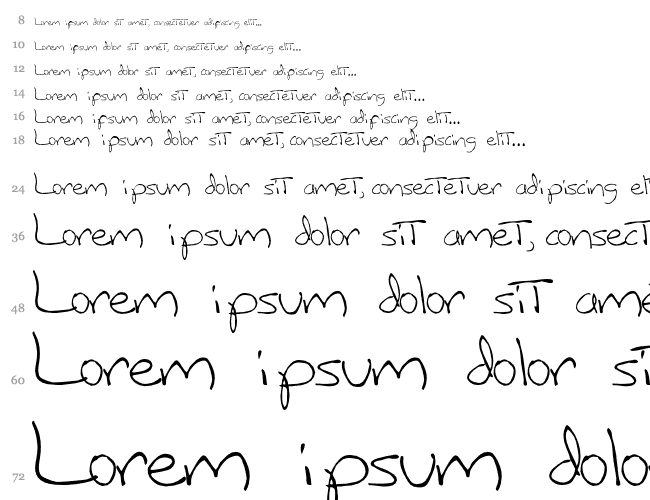 8 Lorem ipsum dolor sit amet, consectetuer adipiscing elit...
10 Lorem ipsum dolor sit amet, consectetuer adipiscing elit...
12 Lorem ipsum dolor sit amet, consectetuer adipiscing elit...
14 Lorem ipsum dolor sit amet, consectetuer adipiscing elit...
16 Lorem ipsum dolor sit amet, consectetuer adipiscing elit...
18 Lorem ipsum dolor sit amet, consectetuer adipiscing elit...
24 Lorem ipsum dolor sit amet, consectetuer adipiscing eli
36 Lorem ipsum dolor sit amet, consect
48 Lorem ipsum dolor sit ame
60 Lorem ipsum dolor si
72 Lorem ipsum dolo